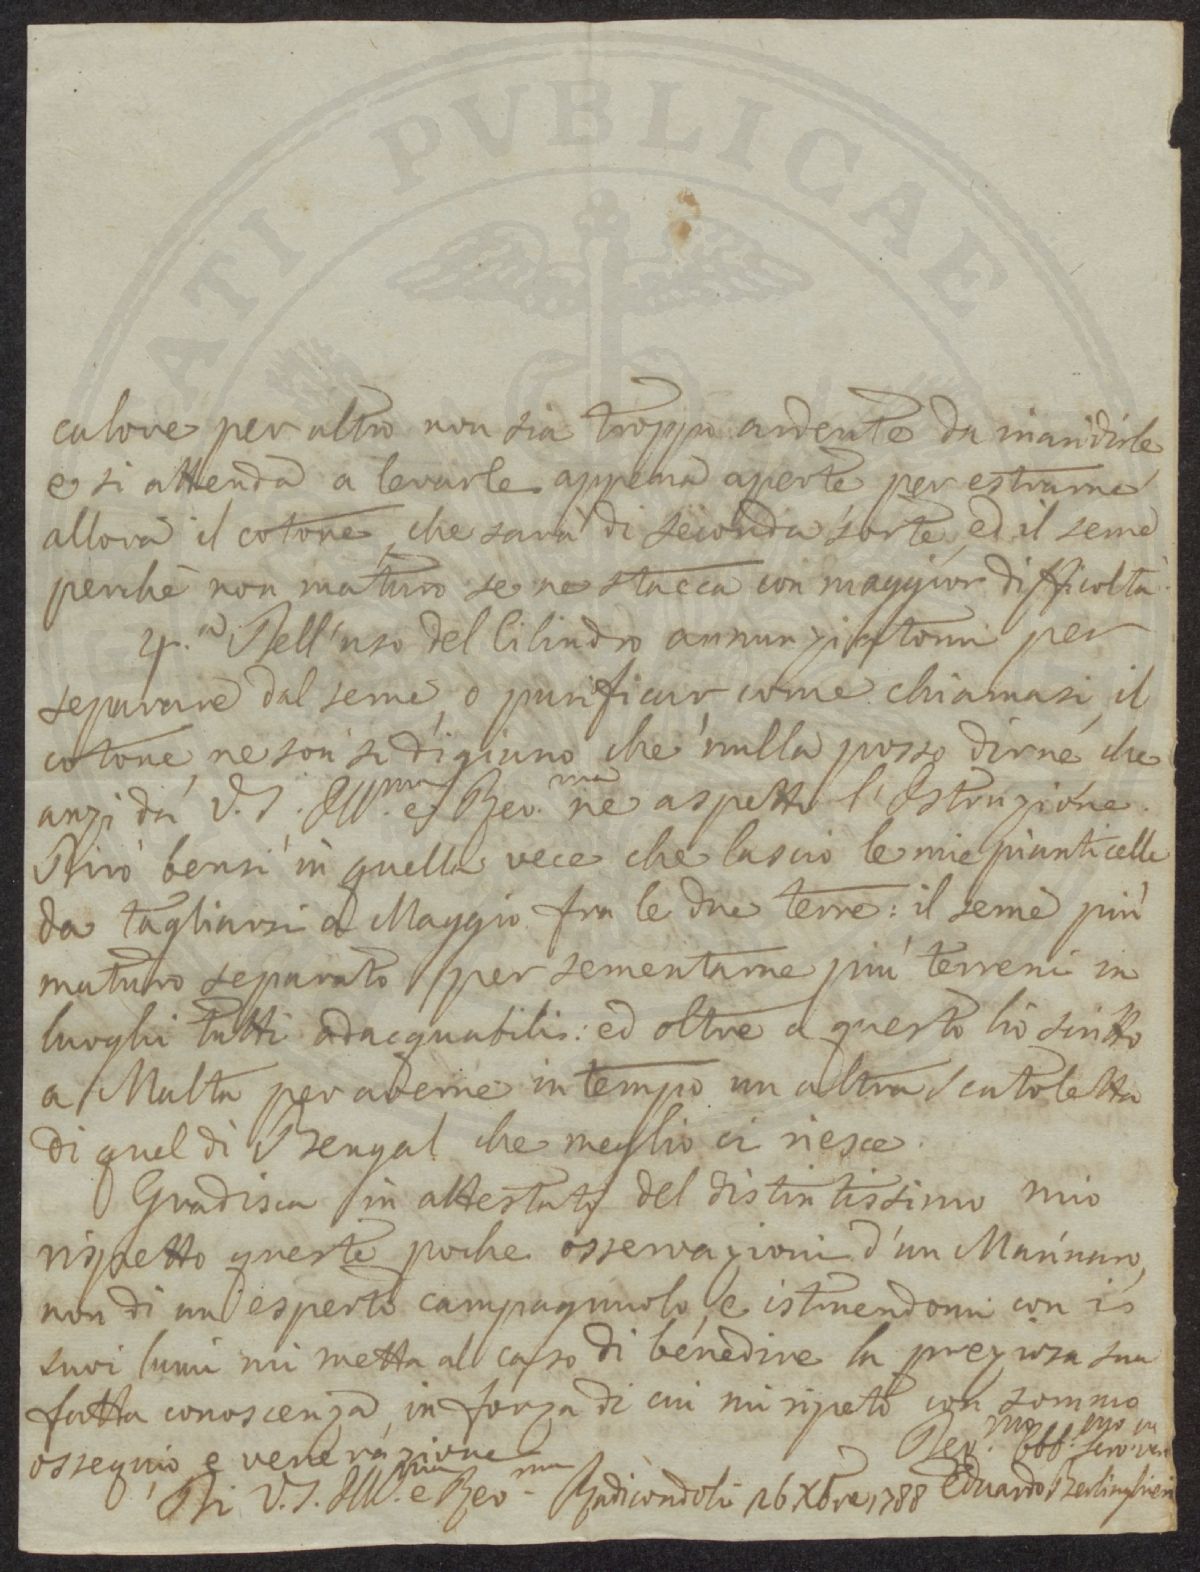 ATI PVBLICAE
calore per altro non sia troppo ardente da inaridirle
e si attenda a levarle appena aperte per estrarne
allora il cotone, che sarà di seconda sorte, ed il seme
perchè non maturo se ne stacca con maggior difficoltà.
4.a Dell'uso del Cilindro annunziatomi per
separare dal seme, o purificar come chiamasi, il
cotone, ne son sì digiuno, che nulla posso dirne, che
anzi da V. S. Ill.ma e Rev.ma ne aspetto l'Istruzione.
Dirò bensì in quella vece che lascio le mie pianticelle
da tagliarsi a Maggio fra le due terre: il seme più
maturo separato per sementarne più terreni in
luoghi tutti adacquabili: ed oltre a questo hò scritto
a Malta per averne in tempo un altra scatoletta
di quel di Bengal che meglio ci riesce.
Gradisca in attestato del distintissimo mio
rispetto queste poche osservazioni d'un Marinaro,
non di un esperto campagnuolo, e istruendomi con i
suoi lumi mi metta al caso di benedire la preziosa sua
fatta conoscenza, in forza di cui mi ripeto con sommo
ossequio, e venerazione
Di V. S. Ill.ma e Rev.ma Radicondoli 26 Xbre 1788
Dev.mo Obb.mo Serv. ve
Eduardo Berlinghieri